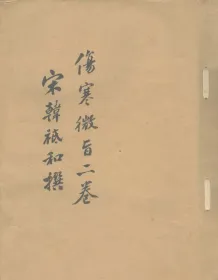 傷寒微旨二卷
宋韓祗和撰